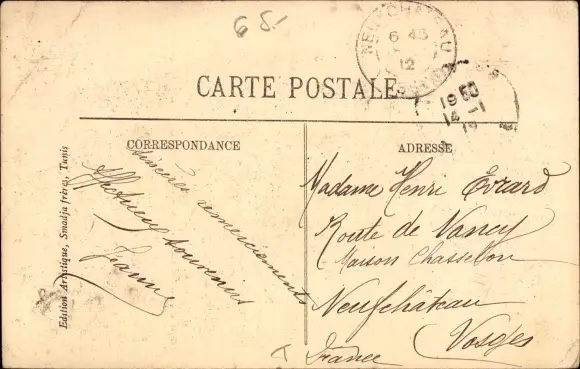 65.-
NEUFCHATEAU
6 45
12
VOSGES
1950
14-1
12
CARTE POSTALE
CORRESPONDANCE
ADRESSE
Edition Artistique, Smadja frères, Tunis
sincères remerciements
Affectueux souvenirs
Jeanne
Madame Henri Évrard
Route de Nancy
Maison Chassellon
Neufchâteau
Vosges
France